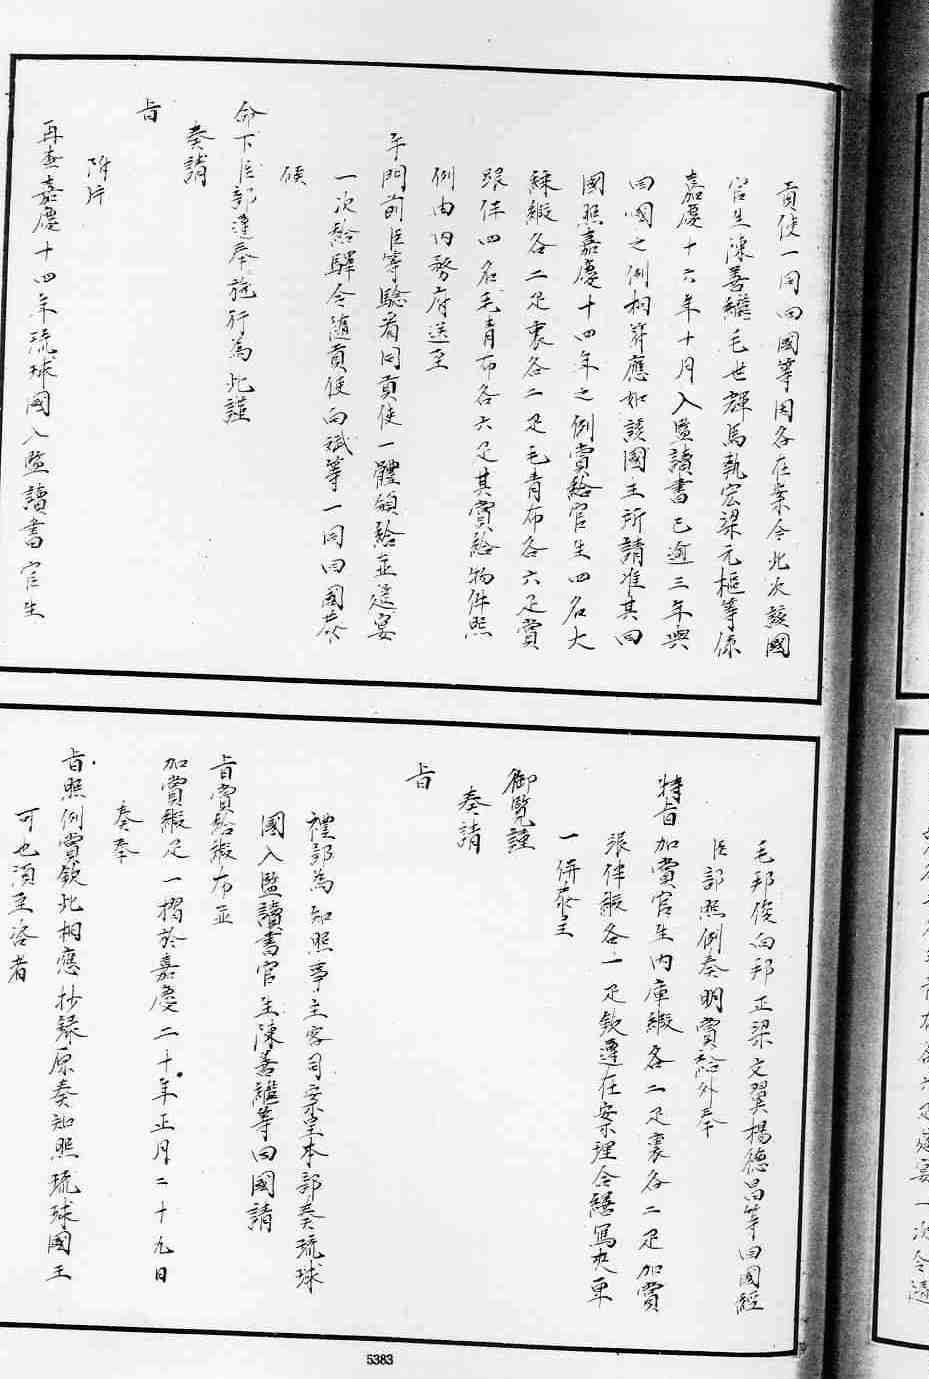 貢使一同回國等因各在案今此次該國
官生陳善繼毛世輝馬執宏梁元樞等係
嘉慶十六年十月入監讀書已逾三年與
回國之例相符應如該國王所請准其回
國照嘉慶十四年之例賞給官生四名大
綵緞各二疋裏各二疋毛青布各六疋賞
跟伴四名毛青布各六疋其賞給物件照
例由內務府送至
午門前臣等驗看同貢使一體頒給並筵宴
一次給驛令隨貢使向斌等一同回國恭
候
命下臣部遵奉施行為此謹
奏請
旨
附片
再查嘉慶十四年琉球國入監讀書官生
毛邦俊向邦正梁文翼楊德昌等回國經
臣部照例奏明賞給外奉
特旨加賞官生內庫緞各二疋裏各二疋加賞
跟伴緞各一疋欽遵在案理合繕寫夾單
一併恭呈
御覽謹
奏請
旨
禮部為知照事主客司案呈本部奏琉球
國入監讀書官生陳善繼等回國請
旨賞給緞布並
加賞緞疋一摺於嘉慶二十年正月二十九日
奏奉
旨照例賞欽此相應抄錄原奏知照琉球國王
可也須至咨者
5383